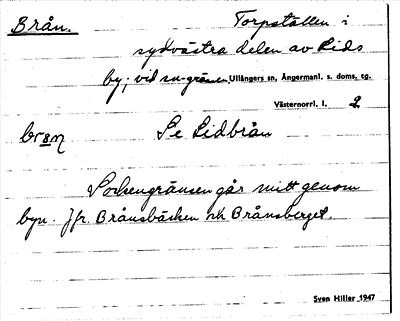 Brån. Torpställen i
sydvästra delen av Lids
by; vid sn-gränsen Ullångers sn, Ångermanl. s. doms. tg.
Västernorrl. l. 2
Se Lidbrån
Sockengränsen går mitt genom
byn. Jfr. Brånsbäcken och Brånsberget.
Sven Hiller 1947